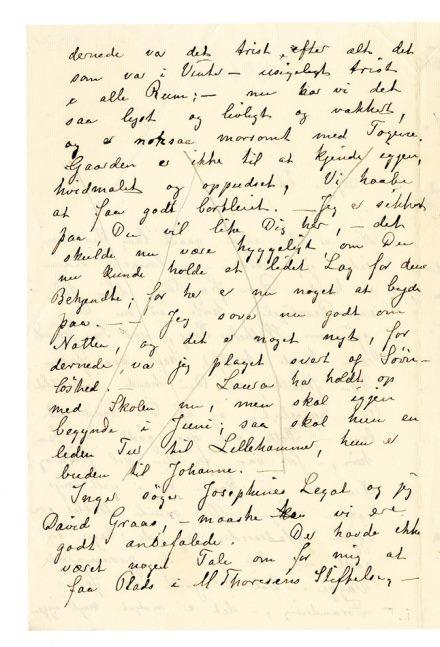 dernede var det trist, efter alt det
som var i Vinter – usigeligt trist
i alle Rum; – nu har vi det
saa lyst og livligt og vakkert,
og er noksaa morsomt med Togene.
Gaarden er ikke til at kjende igjen,
hvidmalet og oppudset, Vi haabe
at faa godt bortleiet. – Jeg er sikker
paa, Du vil like Dig her, – det
skulde nu være hyggeligt, om Du
nu kunde holde et lidet Lag for dine
Bekjendte; for her er nu noget at byde
paa. – – Jeg sover nu godt om
Natten, og det er noget nyt, for
dernede, var jeg plaget svært af Søvn-
løshed. Laura har holdt op
med Skolen nu, men skal igjen
begynde i Juni; saa skal hun en
liden Tur til Lillehammer, hun er
buden til Johanne. –
Inga søger Josephines Legat og jeg
David Graas, – maaske vi ere
godt anbefalede. Der havde ikke
været noget Tale om for mig at
faa Plads i M Thoresens Stiftelse, –